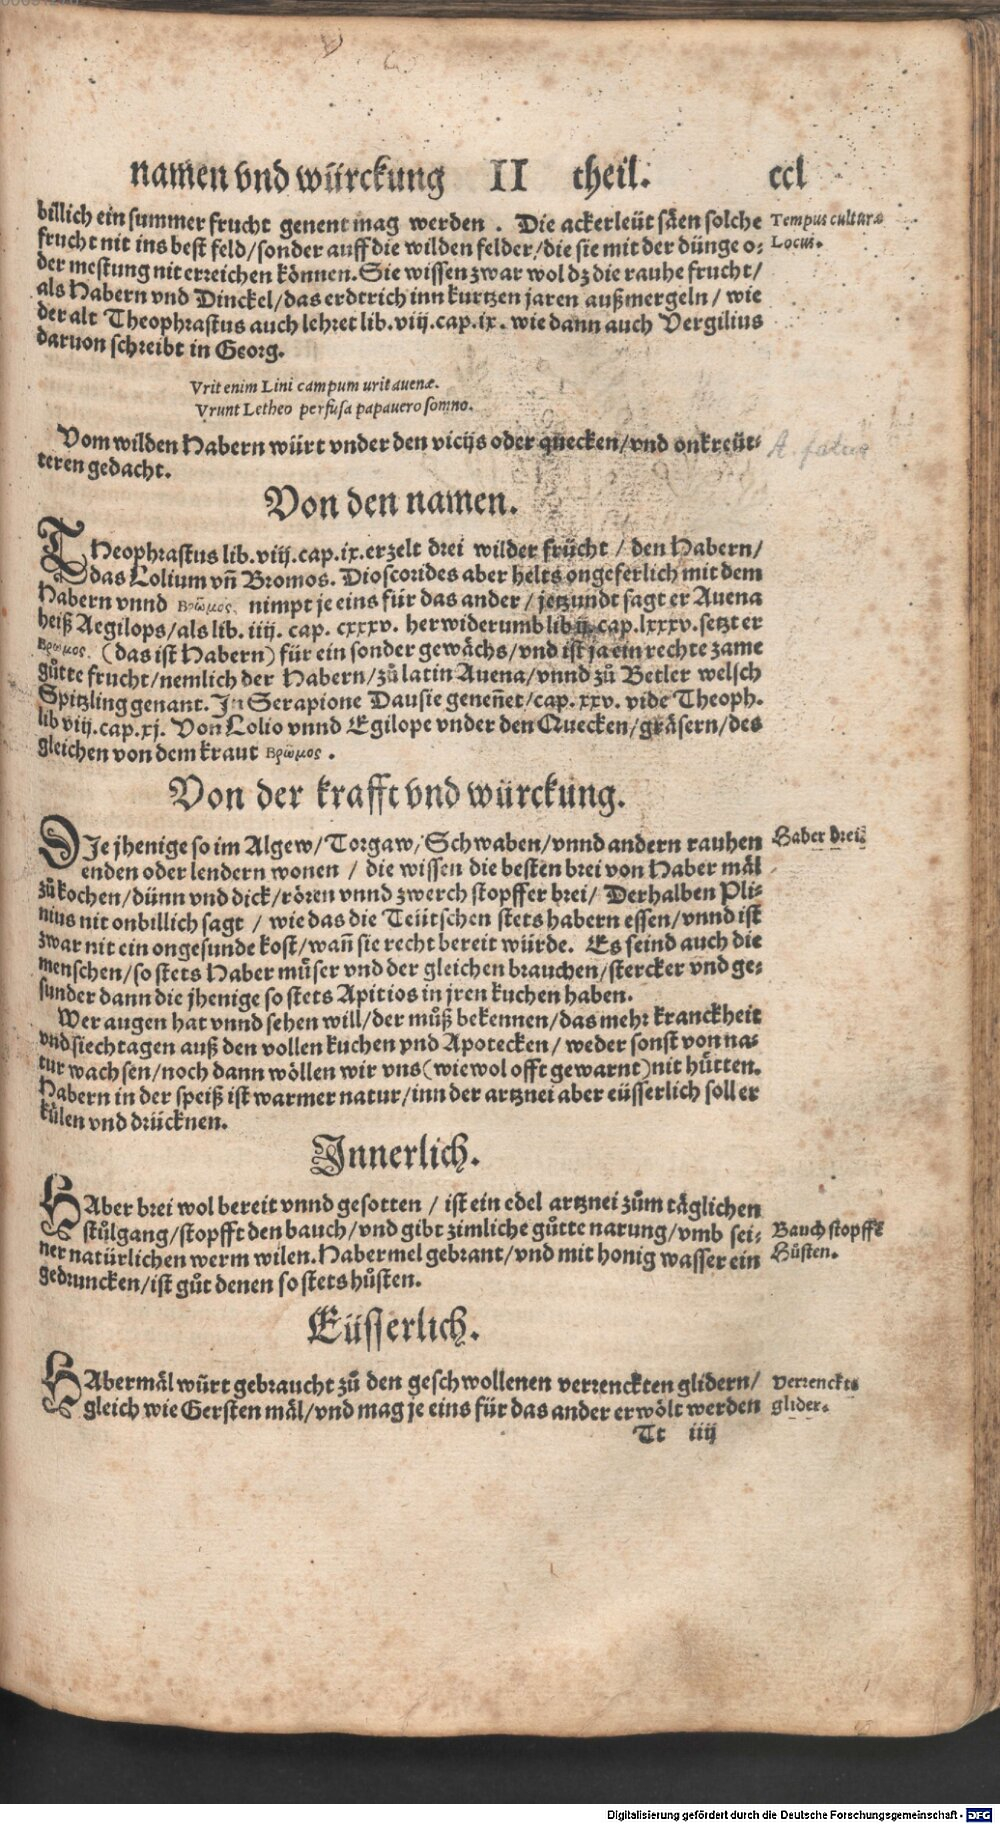 namen vnd würckung II theil. ccl
billich ein summer frucht genent mag werden . Die ackerleüt säen solche
Tempus culturæ
frucht nit ins best feld/sonder auff die wilden felder/die sie mit der dünge o⸗
Locus.
der mestung nit erreichen können. Sie wissen zwar wol dz die rauhe frucht/
als Habern vnd Dinckel/das erdtrich inn kurtzen jaren außmergeln/ wie
der alt Theophrastus auch lehret lib.viij.cap.ix. wie dann auch Vergilius
daruon schreibt in Georg.
Vrit enim Lini campum urit auenæ.
Vrunt Letheo perfusa papauero somno.
Vom wilden Habern würt vnder den vicijs oder quecken/vnd onkreüt⸗
teren gedacht.
Von den namen.
THeophrastus lib.viij.cap.ix.erzelt drei wilder frücht / den Habern/
das Lolium vñ Bromos. Dioscorides aber helts ongeferlich mit dem
Habern vnnd Βρῶμος. nimpt je eins für das ander / jetzundt sagt er Auena
heiß Aegilops/als lib. iiij. cap. cxxxv. herwiderumb lib ij.cap.lxxxv.setzt er
Βρῶμος. (das ist Habern) für ein sonder gewächs/vnd ist ja ein rechte zame
gůtte frucht/nemlich der Habern/zů latin Auena/vnnd zů Betler welsch
Spitzling genant. In Serapione Dausie geneñet/cap.xxv. vide Theoph.
lib viij.cap.xj. Von Lolio vnnd Egilope vnder den Quecken/gräsern/des
gleichen von dem kraut Βρῶμος .
Von der krafft vnd würckung.
DIe jhenige so im Algew/Torgaw/Schwaben/vnnd andern rauhen
Haber brei⸗
enden oder lendern wonen / die wissen die besten brei von Haber mäl
zů kochen/dünn vnd dick/rören vnnd zwerch stopffer brei/ Derhalben Pli⸗
nius nit onbillich sagt / wie das die Teütschen stets habern essen/vnnd ist
zwar nit ein ongesunde kost/wañ sie recht bereit würde. Es seind auch die
menschen/so stets Haber můser vnd der gleichen brauchen/stercker vnd ge⸗
sunder dann die jhenige so stets Apitios in jren kuchen haben.
Wer augen hat vnnd sehen will/der můß bekennen/das mehr kranckheit
vnd siechtagen auß den vollen kuchen vnd Apotecken/ weder sonst von na⸗
tur wachsen/noch dann wöllen wir vns(wiewol offt gewarnt)nit hůtten.
Habern in der speiß ist warmer natur/inn der artznei aber eüsserlich soll er
külen vnd drücknen.
Innerlich.
HAber brei wol bereit vnnd gesotten / ist ein edel artznei zům täglichen
stůlgang/stopfft den bauch/vnd gibt zimliche gůtte narung/vmb sei⸗
Bauch stopffē
ner natürlichen werm wilen. Habermel gebrant/vnd mit honig wasser ein
Hůsten.
gedruncken/ist gůt denen so stets hůsten.
Eüsserlich.
HAbermäl würt gebraucht zů den geschwollenen verrenckten glidern/
Verrenckte
gleich wie Gersten mäl/vnd mag je eins für das ander erwölt werden
glider.
Tt iiij
Digitalisierung gefördert durch die Deutsche Forschungsgemeinschaft - DFG